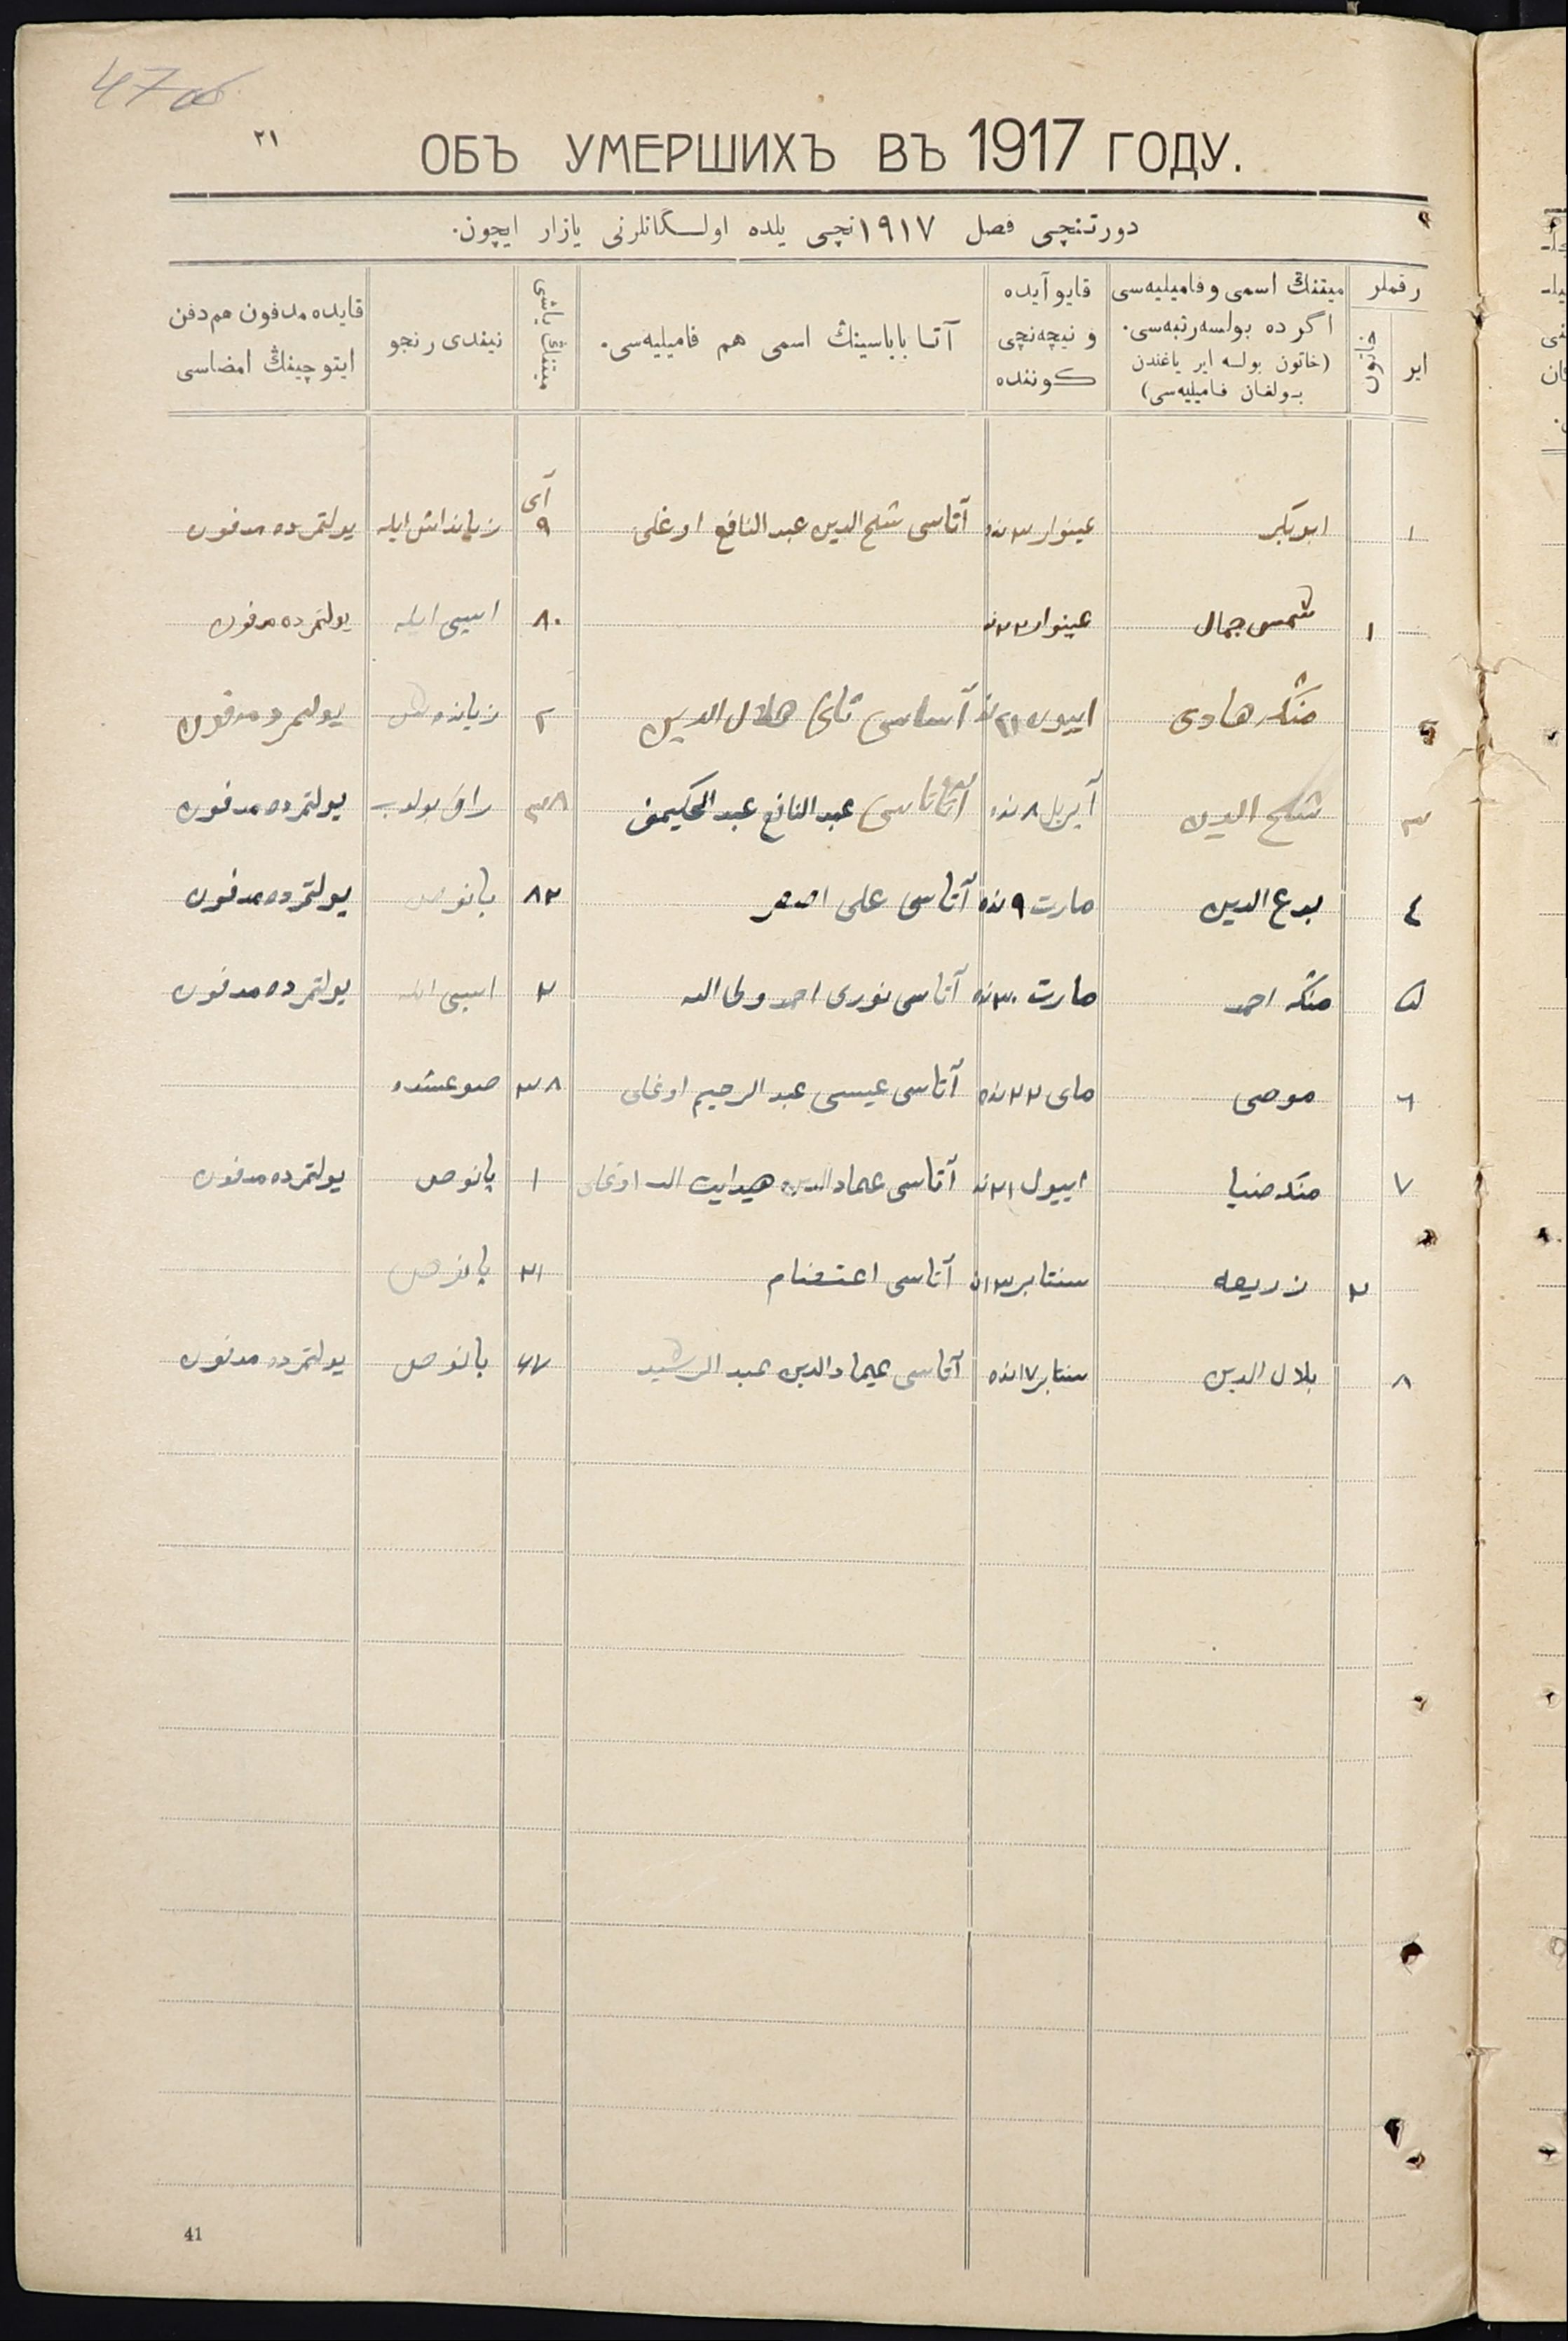 47 об
٢١
ОБЪ УМЕРШИХЪ ВЪ 1917 ГОДУ.
دورتنچی فصل ١٩١٧نچی يلده اولسگانلرنی يازار ايچون.
رقملر
اير
خاتون
ميتنڭ اسمی و فاميليه‌سی
اگر ده بولسه رتبه‌سی.
(خاتون بولسه اير ياغندن
بولغان فاميليه‌سی)
قايو آيده
و نيچه‌نچی
كوننده
آتا باباسينڭ اسمی هم فاميليه‌سی.
ميتنڭ ياشی
نيندی رنجو
قايده مدفون هم دفن
ايتوچينڭ امضاسی
١ ابوبكر عينوار ٣نده آتاسی شلح الدين عبد النافع اوغلی ٩ آی زياندانش ايله يولتمرده مدفون
١ شمس جمال عينوار ٢٢ند ٨٠ اسيسی ايله يولتمرده مدفون
منكه هادی ٢١ند هلال الدين ٢ زيانده‌ش يولتمرده مدفون
٣ شلح الدين آپريل ٨نده آتاسی عبد النافع عبد الحكيمف ٣٨ بولوب يولتمرده مدفون
٤ بدع الدين مارت ٩نده آتاسی علی ٨٢ پانوص يولتمرده مدفون
۵ منكه احمد مارت ٣٠نده آتاسی نوری احمد ولی الله ٢ اسيسی ايله يولتمرده مدفون
٦ موصی مای ٢٢نده آتاسی عيسی عبد الرحيم اوغلی ٣٨ صوغشده
٧ منكه ضيا اييول ٢١ند آتاسی عماد الدين هدايت الله اوغلی ١ پانوص يولتمرده مدفون
٢ زريعه سنتابر ١٣ند آتاسی اعتصام ٢١ پانوص
٨ بلال الدين سنتابر ١٧نده آتاسی عماد الدين عبد الرشيد ٦٧ پانوص يولتمرده مدفون
41